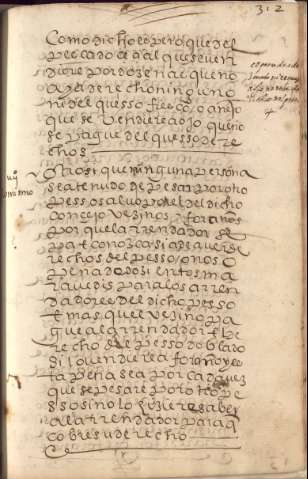 312
Como dicho es pero que del
pescado cecial que se ven
diere por dozena e que no
aya derecho ninguno
ni del quesso fresco o añejo
que se vendiere a ojo que no
se pague del quesso de re
chos
vij
Otrosi que ninguna persona
sea tenudo de pesar por otro
pesso saluo por el del dicho
concejo vezinos y foranos
por que el arrendador se
pa e conozca si a de auer de
rechos del pesso o no so
pena de dozientos ma
rauedis para los arren
dadores del dicho pesso
e mas que el vezino pa
gue al arrendador el de
recho del pesso doblado
si lo vendiere a forano y es
ta pena sea por cada vez
que se pesare por otro pe
sso si no lo fiziere saber
a el arrendador para q
cobre su derecho